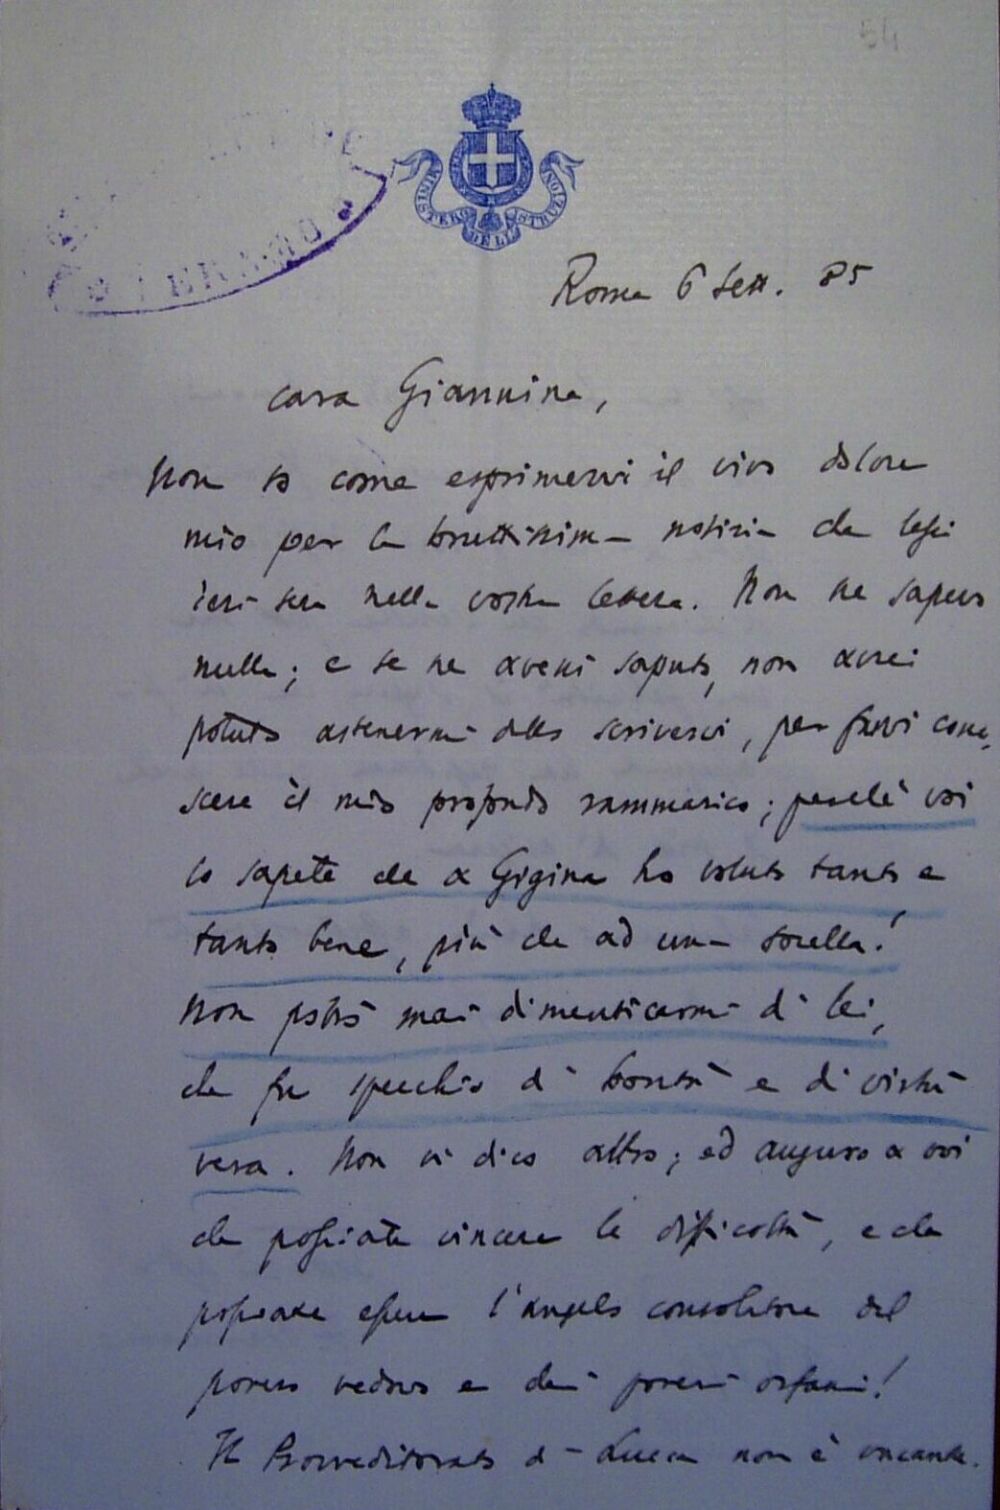 54
MINISTERO DELL'ISTRUZION
TERAMO
Roma 6 Sett. 85
cara Giannina,
Non so come esprimervi il vivo dolore
mio per la bruttissima notizia che lessi
ieri sera nella vostra lettera. Non ne sapevo
nulla; e se ne avessi saputo, non avrei
potuto astenermi dallo scrivervi, per farvi cono,
scere il mio profondo rammarico; perchè voi
lo sapete che a Gigina ho voluto tanto e
tanto bene, più che ad una sorella!
Non potrò mai dimenticarmi di lei,
che fu specchio di bontà e di virtù
vera. Non vi dico altro; ed auguro a voi
che possiate vincere le difficoltà, e che
possiate essere l'angelo consolatore del
povero vedovo e dei poveri orfani!
Il Provveditorato di Lucca non è vacante.